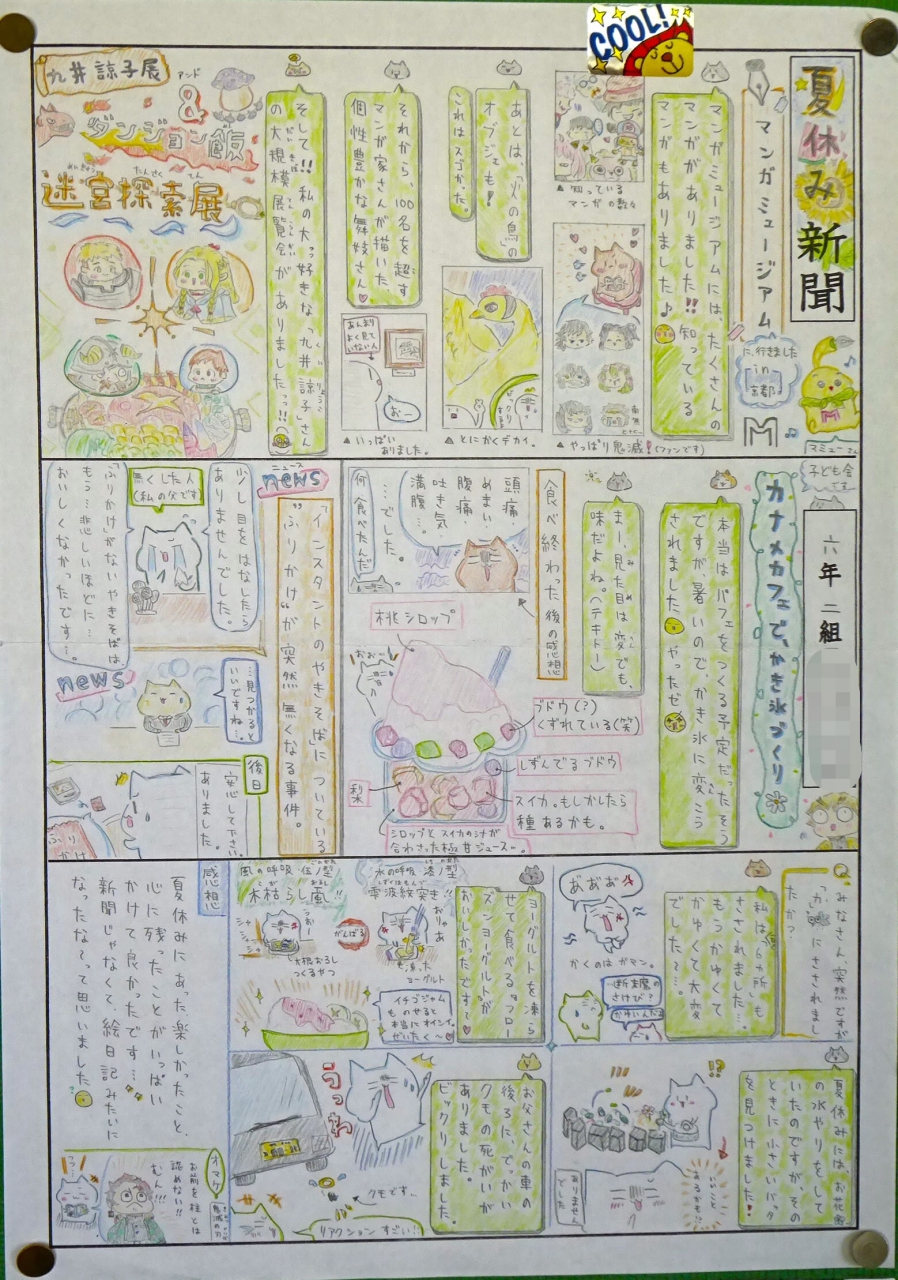 COOL!
夏休み新聞
六年 二組
マンガミュージアム
に、行きました
in
京都。
マミューさん
マンガミュージアムには、たくさんの
マンガがありました!!知っている
マンガもありました♪
▲知っている
マンガの数々
▲やっぱり鬼滅!(ファンです)
あとは、「火の鳥」の
オブジェも!
これはスゴかった。
ビックリ
▲とにかくデカイ。
それから、100名を超す
マンガ家さんが描いた
個性豊かな舞妓さん♡
あんまり
よく見て
いない人
おー
▲いっぱい
ありました。
そして!!私の大っ好きな「九井諒子」さん
の大規模展覧会がありましたっ!!
九井諒子展
アンド
&
ダンジョン飯
迷宮探索展
めいきゅう
たんさく
てん
子ども会
です
カナメカフェで、かき氷づくり
本当はパフェをつくる予定だったそう
ですが、暑いので、かき氷に変こう
されました やったぜ
まー見た目は変でも、
味だよね。(テキトー)
食べ終わった後の感想
頭痛
めまい
腹痛
吐き気
満腹…
でした。
何食べたんだ
桃シロップ
おおー
ブドウ(?)
くずれている(笑)
しずんでるブドウ
スイカ。もしかしたら
種あるかも。
シロップとスイカの汁が
合わさった極甘ジュース―。
ニュース
news
「インスタントのやきそば」についている
"ふりかけ"が突然無くなる事件。
少し目をはなしたら
ありませんでした。
無くした人
(私の父です)
「ふりかけ」がないやきそばは、
もう…悲しいほどに…
おいしくなかったです…。
news
…見つかると
いいですね…。
後日
安心して下さい。
ありました。
ふり
かけ
みなさん、突然ですが
「カ」にさされまし
たか?
私は「6カ所」も
さされました…。
もうかゆくて
かゆくて大変
でした〜…。
あ゛あ゛あ゛
かくのはガマン。
…断末魔の
さけび?
かゆいんだよ
夏休みには、お花畑
の水やりをして
いたのですが、その
ときに小さいバッタ
を見つけました!
!?
いいこと
あるかも!?
ありません
でした
ヨーグルトを凍ら
せて食べる"フロー
ズンヨーグルト"が
おいしかったです♡
水の呼吸 漆ノ型
雫波紋突き!!
おりゃあ
凍った
ヨーグルト
風の呼吸 伍ノ型
木枯らし颪!!
うおー
がんばる
大根おろし
つくるやつ
イチゴジャム
ものせると
本当にオイシイ。
ぜいたく〜♡
お父さんの車の
後ろに、でっかい
クモの死がいが
ありました。
ビックリしました。
うっわ
クモです…
リアクションすごい!!
感想
夏休みにあった楽しかったこと、
心に残ったことがいっぱい
かけて良かったです…
新聞じゃなくて、絵日記みたいに
なったな〜って思いました。
オマケ
お前を柱とは
認めない!!
むん!!!